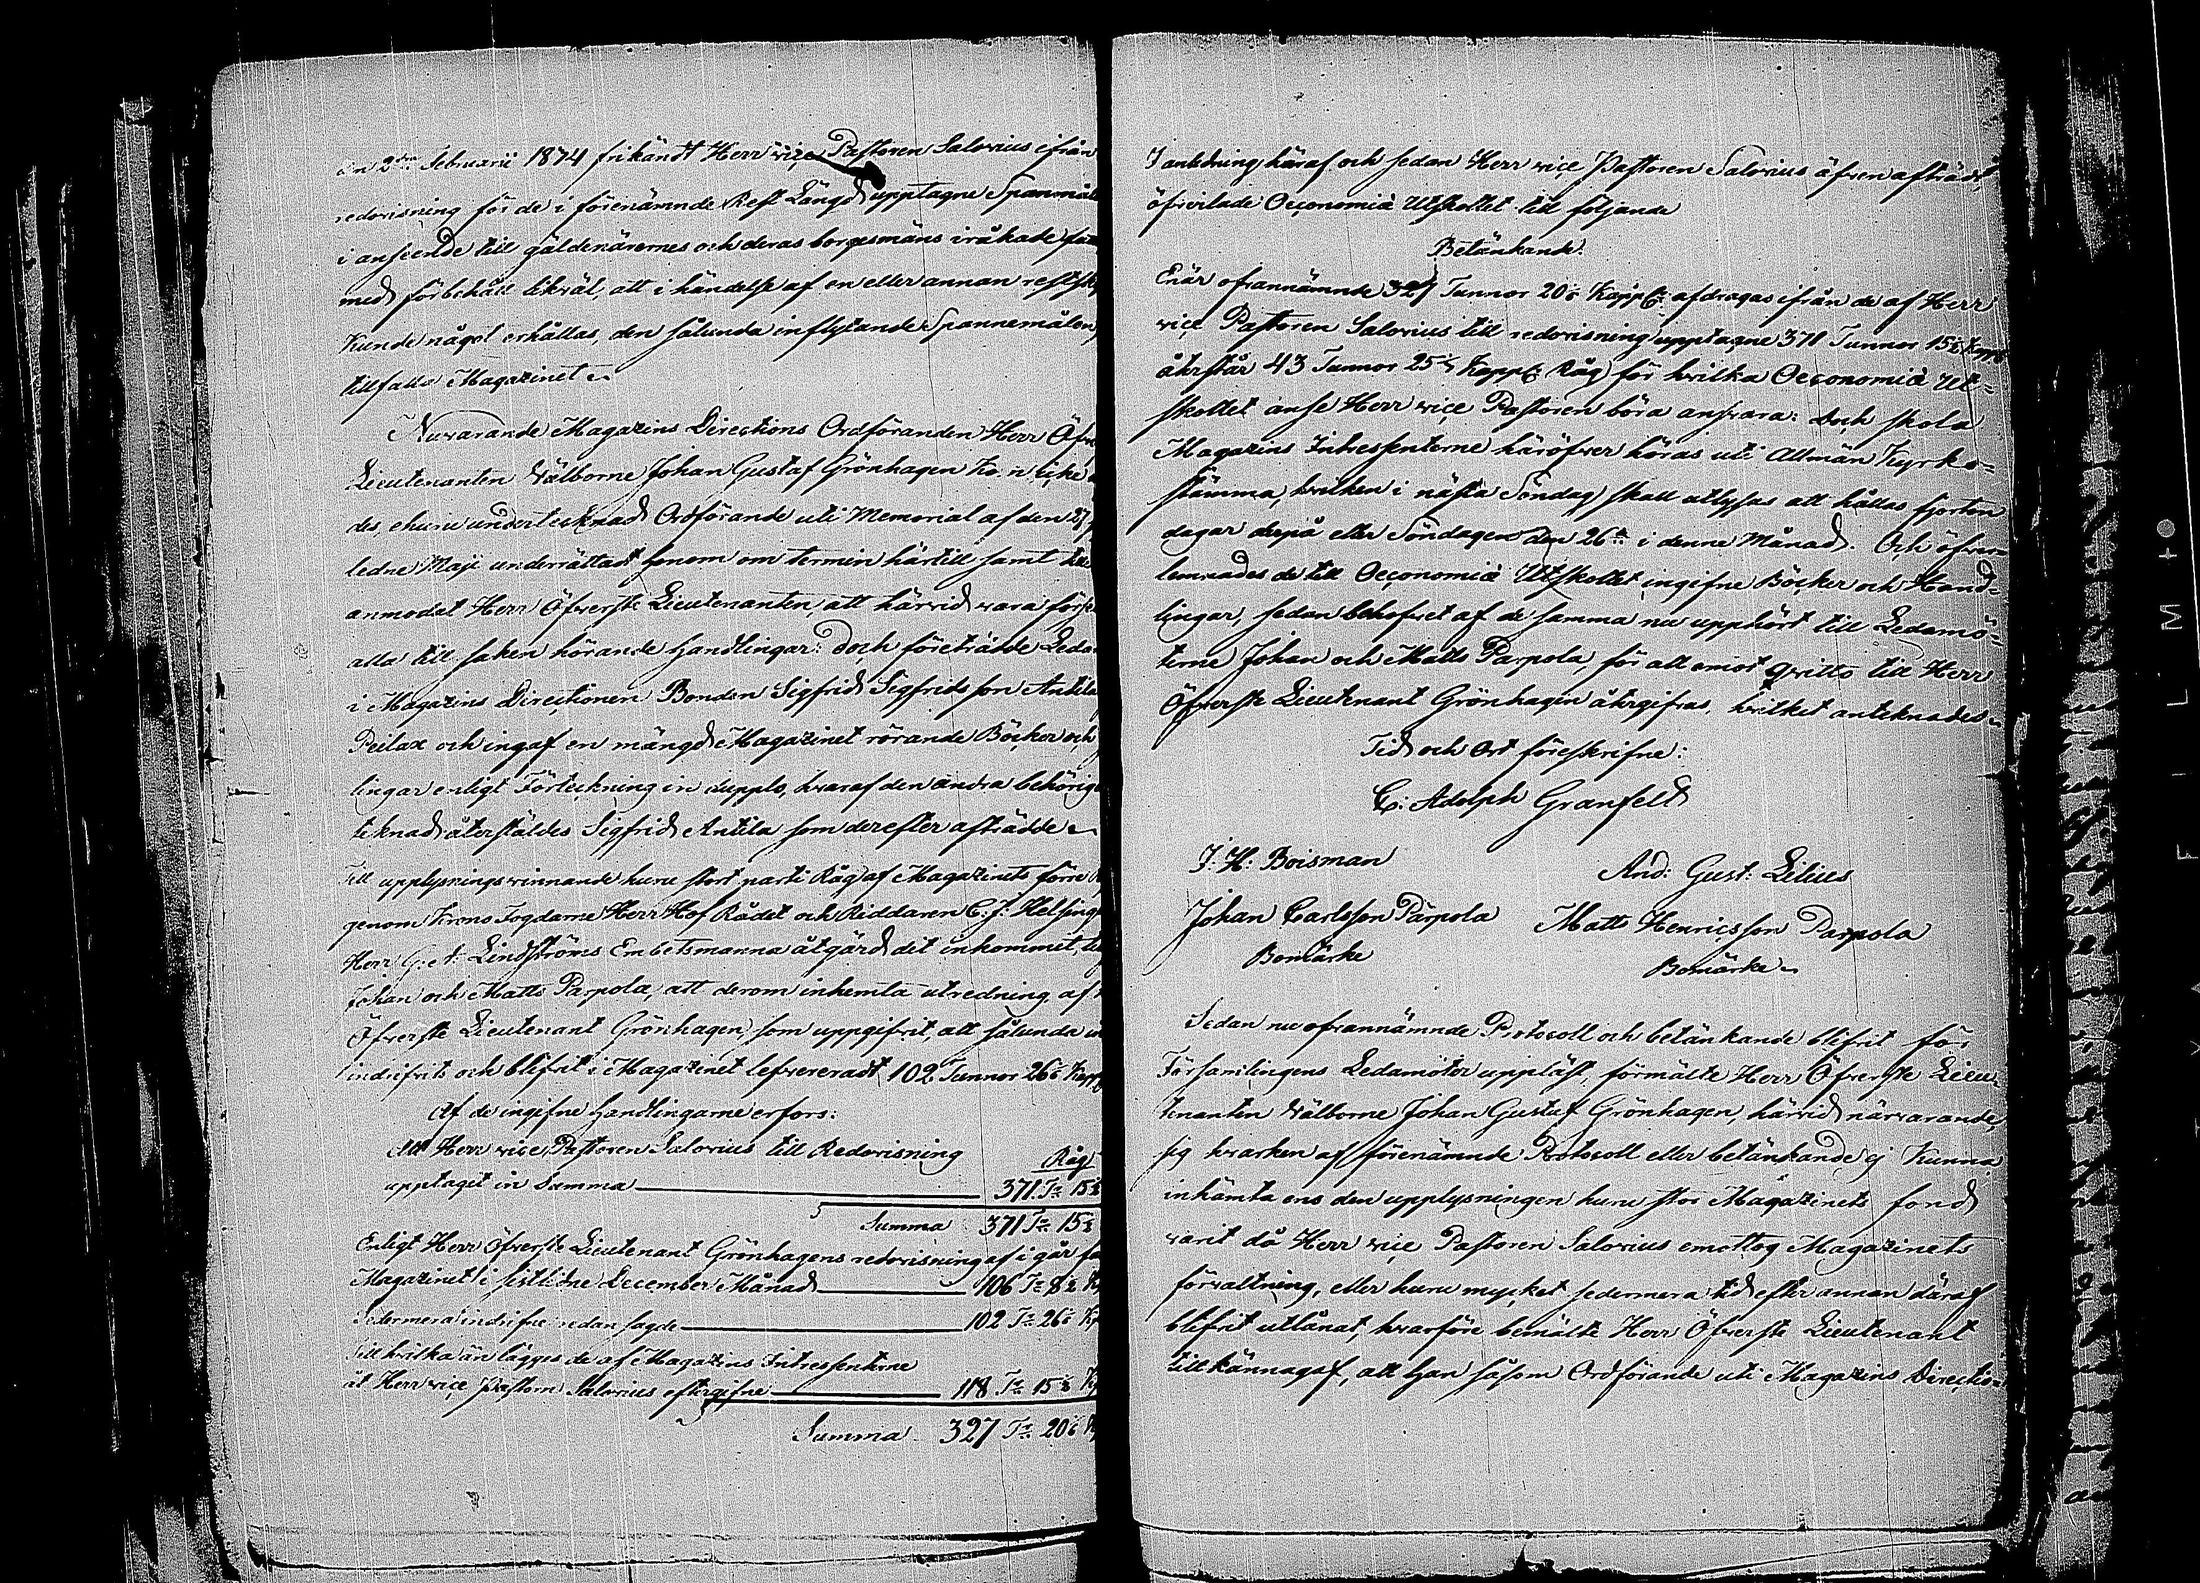 den 2dra Februarii 1874 frikändt Herr vice Pastoren Salovius ifrån
redovisning för de i förenämnde Rest Längd upptagne Spanmål
i anseende till gäldenärernes och deras borgesmäns iråkade
med förbehåll likväl, att i händelse af en eller annan
Kunde något erhållas, den sålunda inflytande Spannemålen
tillfalla Magazinet
Nuvarande Magazins Directions Ordföranden Herr Öfver
Lieutenanten Wälborne Johan Gustaf Grönhagen
des, ehuru undertecknad Ordförande uti Memorial af den 27
ledne Maji underrättat honom om termin härtill samt
anmodat Herr Öfverste Lieutenanten, att härvid vara
alla till saken hörande handlingar: Doch företrädde Leda
i Magazins Directionen Bonden Sigfrid Sigfridsson Antila
Peilax och ingaf en mängd Magazinet rörande Böcker och
lingar enligt Förteckning in duplo, hvaraf den andra behörig
teknad återstäldes Sigfrid Antila som derefter afträdde
Till upplysnings vinnande huru stort parti Råg af Magazinets förre
genom Krono Fogdarne Herr Hof Rådet och Riddaren C. J. Helsing
Herr G. A. Lindströms Embetsmanna åtgärd dit inkommit,
Johan och Matts Parpola, att derom inhemta utredning af
Öfverste Lieutenant Grönhagen, som uppgifvit, att sålunda
indrifvits och blifvit i Magazinet levereradt 102 Tunnor 26 Kapp
Af de ingifne handlingarne erfors:
Att Herr vice Pastoren Salovius till Redovisning
Råg
upptagit in Summa 371 Tr 15½
Summa 371 Tr 15½
Enligt Herr Öfverste Lieutenant Grönhagens redovisning af i går
Magazinet i sistledne December Månad 106 Tr 8½
Sedermera indrifne redan sagde 102 Tr 26
Till hvilka än lägges de af Magazins Intressenterne
åt Herr vice Pastorn Salovius eftergifne 118 Tr 15½
Summa 327 Tr 20
I anledning häraf och sedan Herr vice Pastoren Salovius äfven afträdt,
öfvilade Oeconomiæ Utskottet till följande
Betänkande:
Enär ofvannämnde 327 Tunnor 20 Kappe afdragas ifrån de af Herr
vice Pastoren Salovius till redovisning upptagne 371 Tunnor 15½ Kapp
återstår 43 Tunnor 25 Kappe Råg för hvilka Oeconomiæ Ut-
skottet anse Herr vice Pastoren böra ansvara: Doch skola
Magazins Intressenterne häröfver höras uti Allmän Kyrko-
stämma, hvilken i nästa Söndag skall utlysas att hållas fjorton
dagar derpå eller Söndagen den 26te i denne Månad. Och öfver-
lemnades de till Oeconomiæ Utskottet ingifne Böcker och Hand-
lingar, sedan behofvet af de samma nu upphört till Ledamö-
terne Johan och Matts Parpola, för att emot qvitto till Herr
Öfverste Lieutenant Grönhagen återgifvas, hvilket anteknades
Tid och Ort föreskrifne:
C: Adolph Granfelt
J: H: Boisman And: Gust: Lilius
Johan Carlsson Parpola Matts Henricsson Parpola
Bomärke Bomärke
Sedan nu ofvannämnde Protocoll och betänkande blifvit för
Församlingens Ledamöter uppläst, förmälte Herr Öfverste Lieu-
tenanten Wälborne Johan Gustaf Grönhagen, härvid närvarande
sig hvarken af förenämnde Protocoll eller betänkande ej Kunna
inhämta ens den upplysningen huru stor Magazinets fond
varit då Herr vice Pastoren Salovius emottog Magazinets
förvaltning, eller huru mycket sedermera tid efter annan däraf
blifvit utlånat, hvarföre bemälte Herr Öfverste Lieutenant
tillkännagaf, att han såsom Ordförande uti Magazins Directio-
FILM